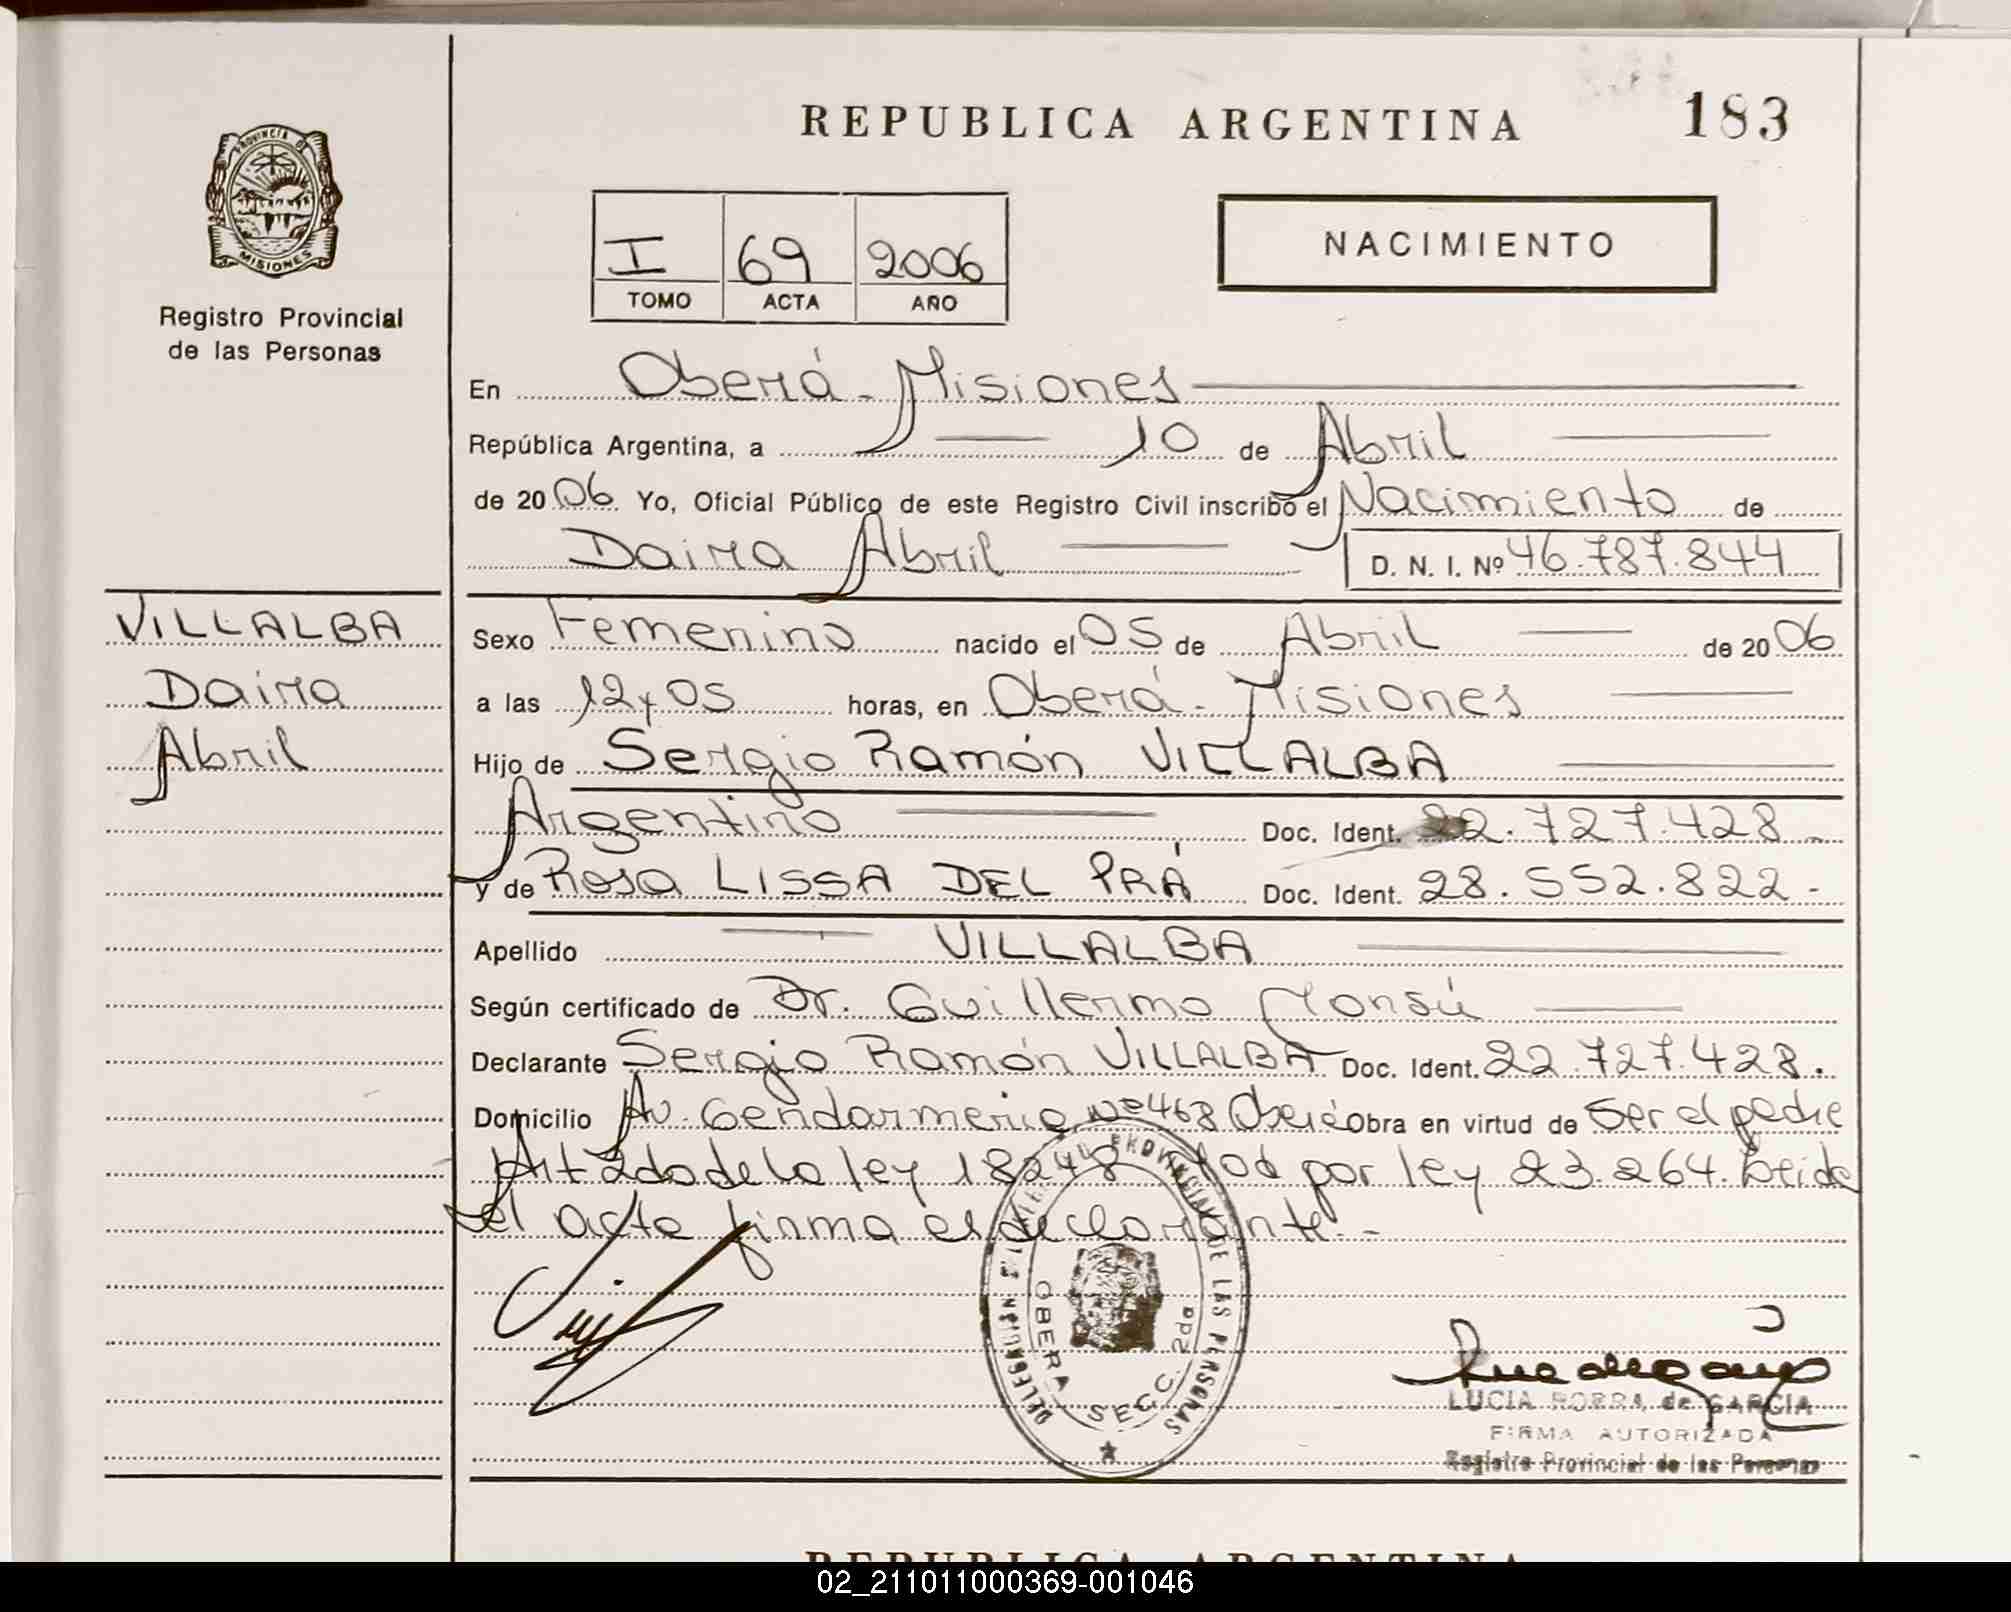 REPUBLICA ARGENTINA
183
PROVINCIA DE
MISIONES
Registro Provincial
de las Personas
I 69 2006
TOMO ACTA AÑO
NACIMIENTO
En Oberá - Misiones
República Argentina, a 10 de Abril
de 2006. Yo, Oficial Público de este Registro Civil inscribo el Nacimiento de
Daira Abril D. N. I. Nº 46.787.844
VILLALBA
Daira
Abril
Sexo Femenino nacido el 05 de Abril de 2006
a las 12 y 05 horas, en Oberá - Misiones
Hijo de Sergio Ramón VILLALBA
Argentino Doc. Ident. 22.727.428
y de Rosa LISSA DEL PRÁ Doc. Ident. 28.552.822-
Apellido VILLALBA
Según certificado de Dr. Guillermo Monsú
Declarante Sergio Ramón VILLALBA Doc. Ident. 22.727.428.
Domicilio Av. Gendarmeria Nº 468 Oberá obra en virtud de Ser el padre
Art 2do de la ley 18248 por ley 23.264. Leida
el acta firma el declarante.-
DELEGACION PROVINCIAL DE LAS PERSONAS
OBERA SECC. 2da
LUCIA de GARCIA
FIRMA AUTORIZADA
Registro Provincial de las Personas
REPUBLICA ARGENTINA
02_211011000369-001046